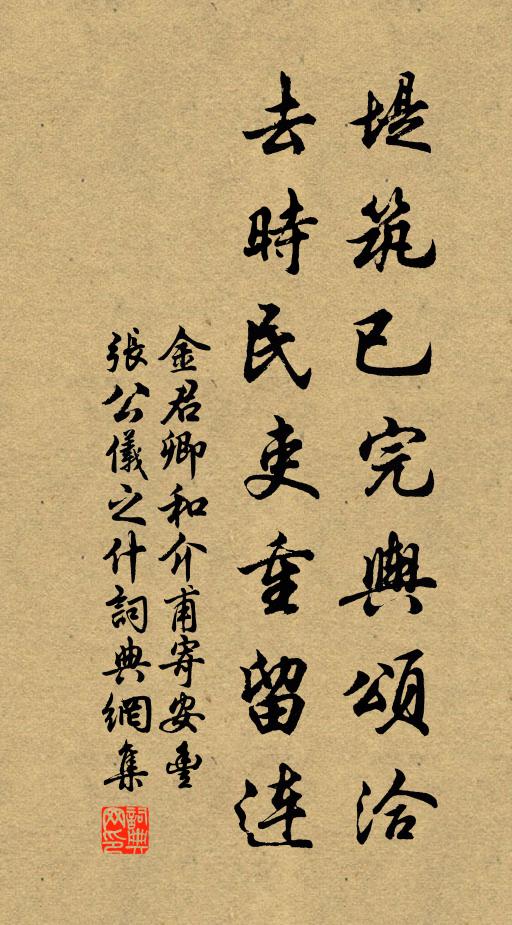 堤筑已完輿頌洽
去時民吏重留连
金君卿和介甫寄安豐
張公儀之什詞典網集
詞典网印